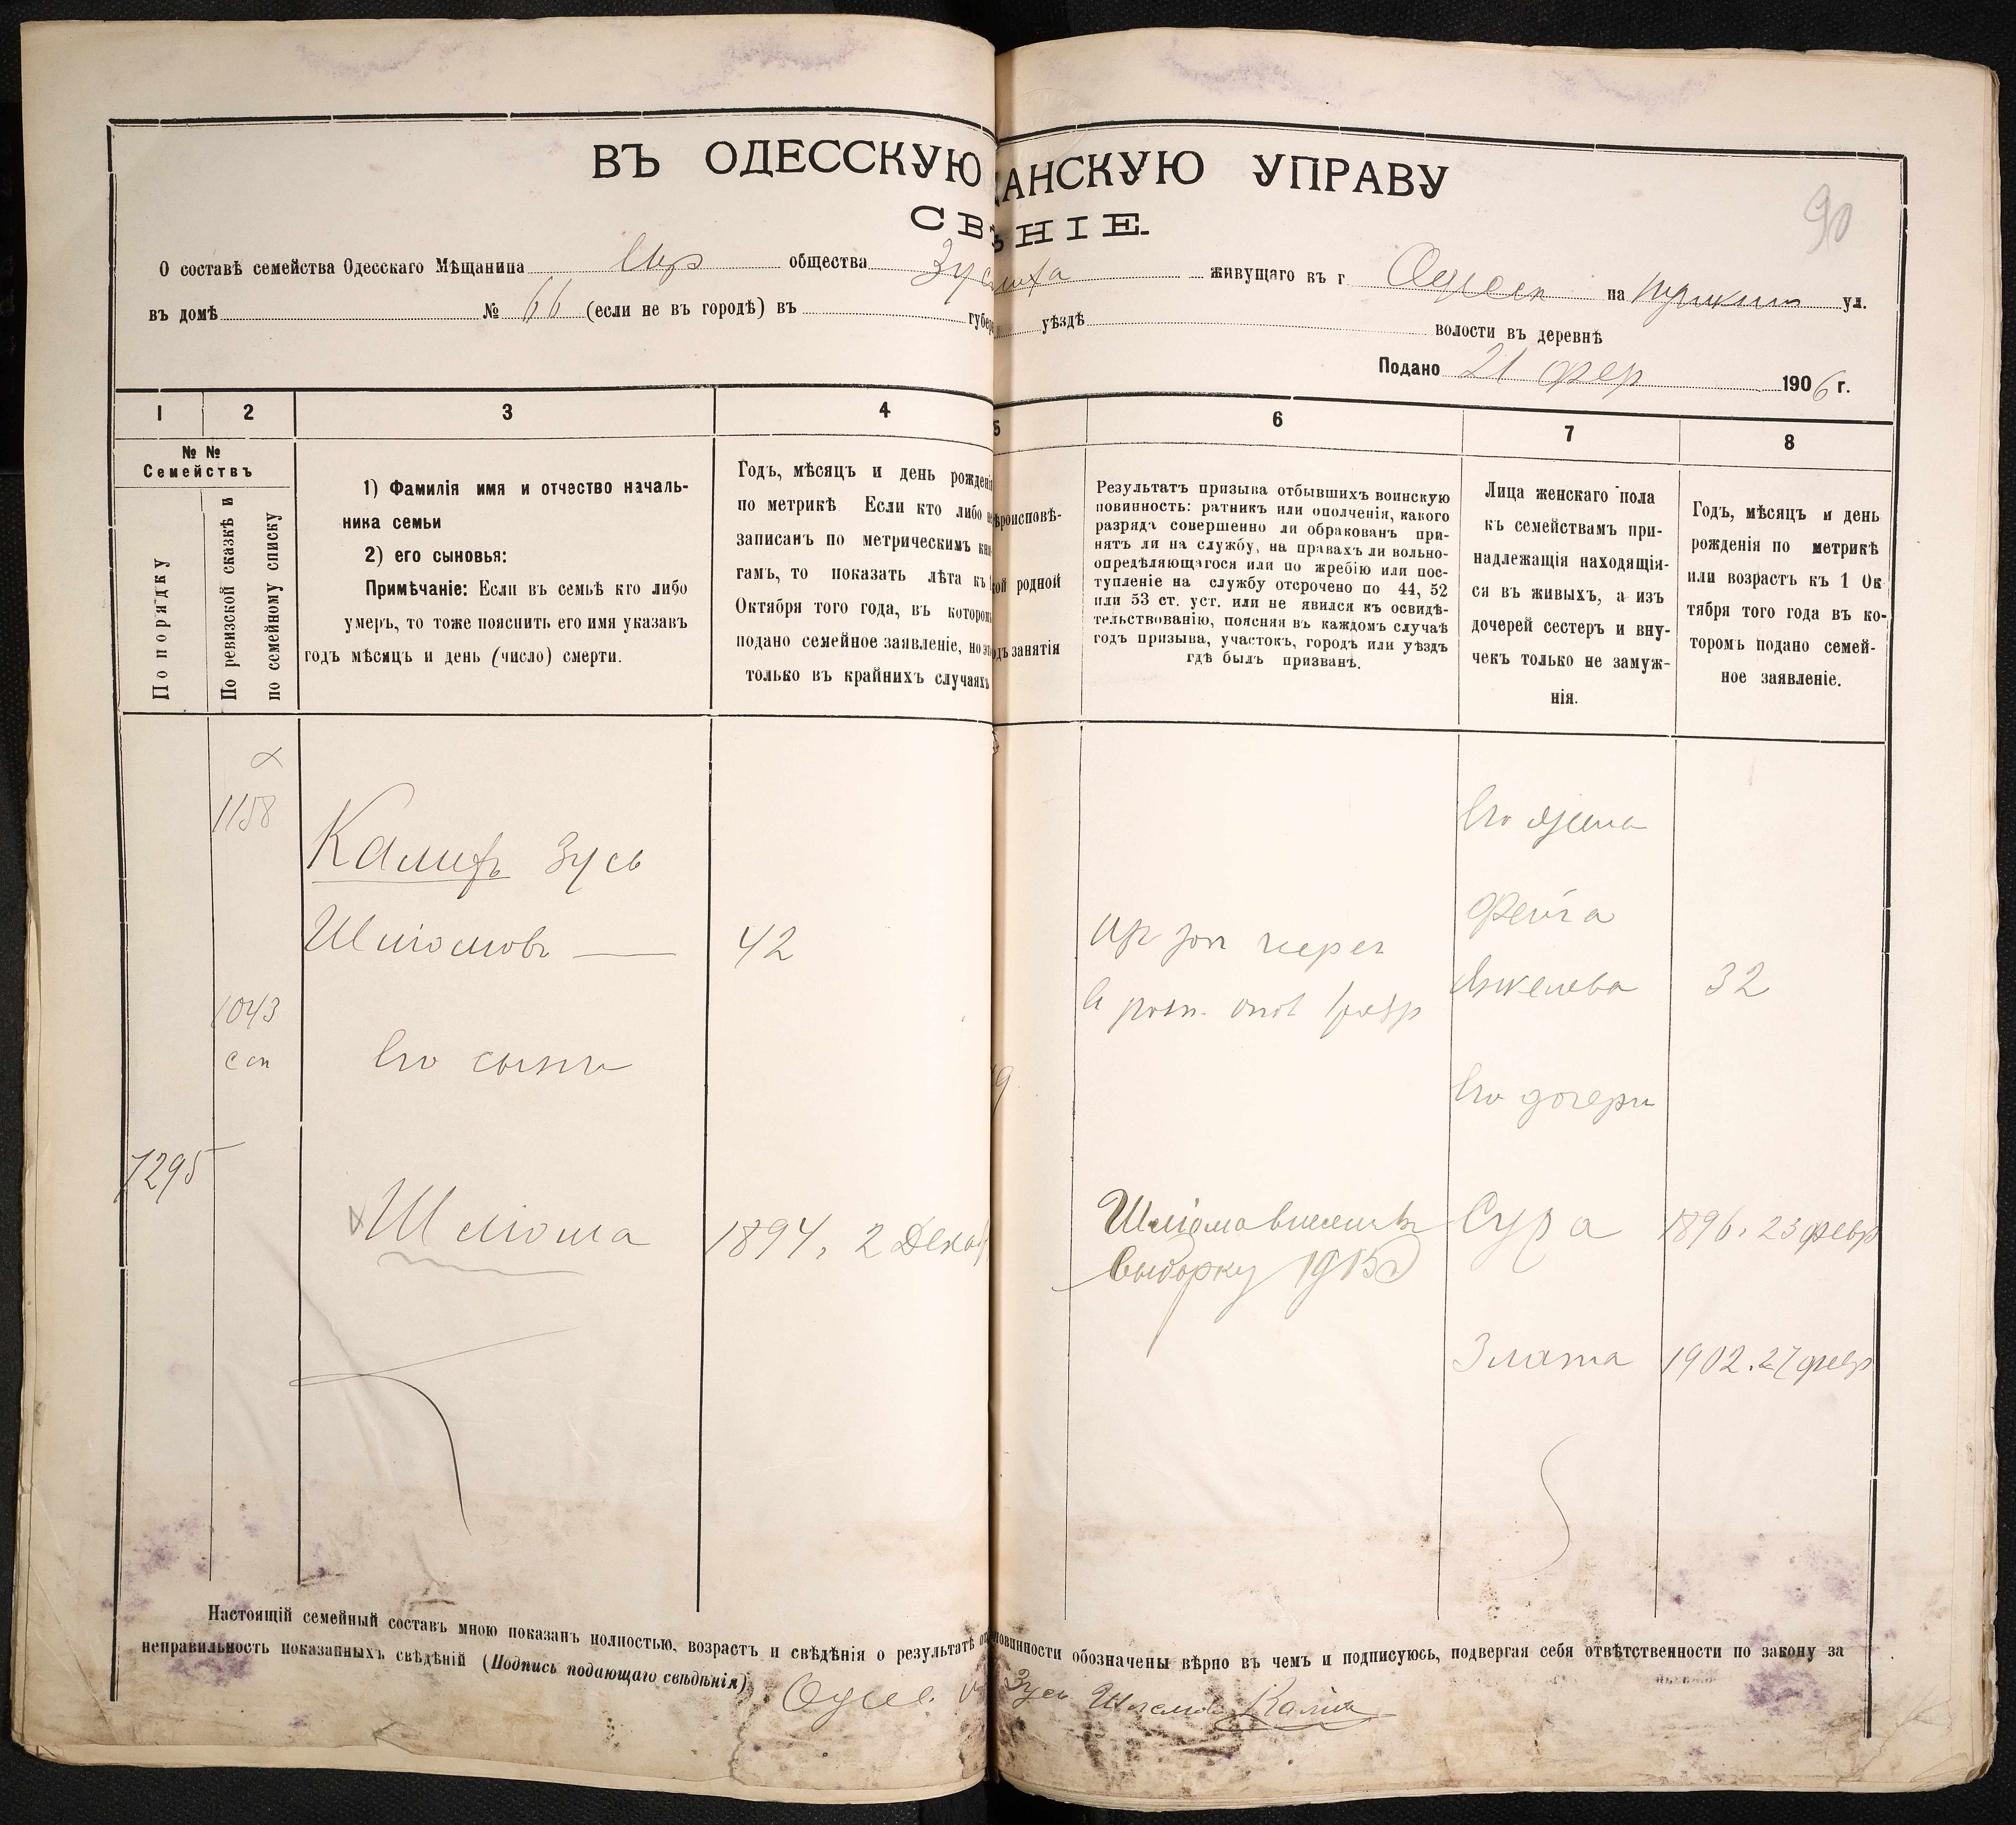 ВЪ ОДЕССКУЮ АНСКУЮ УПРАВУ
СВ НІЕ.
90
О составѣ семейства Одесскаго Мѣщанина Евр общества живущаго въ г Одессѣ на ул.
въ домѣ № 66 (если не въ городѣ) въ губер уѣздѣ волости въ деревнѣ
Подано 21 фев 1906 г.
1 2 3 4 5 6 7 8
№ №
Семействъ
По порядку
По ревизской сказкѣ и
по семейному списку
1) Фамилія имя и отчество началь-
ника семьи
2) его сыновья:
Примѣчаніе: Если въ семьѣ кто либо
умеръ, то тоже пояснить его имя указавъ
годъ мѣсяцъ и день (число) смерти.
Годъ, мѣсяцъ и день рожденія
по метрикѣ Если кто либо не
записанъ по метрическимъ кни
гамъ, то показать лѣта къ 1
Октября того года, въ которомъ
подано семейное заявленіе, но эт
только въ крайнихъ случаяхъ
роисповѣ-
ой родной
одъ занятія
Результатъ призыва отбывшихъ воинскую
повинность: ратникъ или ополченія, какого
разряда совершенно ли обракованъ при-
нятъ ли на службу, на правахъ ли вольно-
опредѣляющагося или по жребію или пос-
тупленіе на службу отсрочено по 44, 52
или 53 ст. уст. или не явился къ освидѣ-
тельствованію, поясняя въ каждомъ случаѣ
годъ призыва, участокъ, городъ или уѣздъ
гдѣ былъ призванъ.
Лица женскаго пола
къ семействамъ при-
надлежащія находящія-
ся въ живыхъ, а изъ
дочерей сестеръ и вну-
чекъ только не замуж-
нія.
Годъ, мѣсяцъ и день
рожденія по метрикѣ
или возрастъ къ 1 Ок
тября того года въ ко-
торомъ подано семей-
ное заявленіе.
1158
Его жена
Калифъ Зусь
Фейга
Шліомовъ 42
Янкелева 32
1043
с сп
Его сынъ
Его дочери
7295
Шліома 1894, 2 Декаб
Шліома внесенъ Сура 1896. 23 февр
выборку 1915
Злата 1902. 27 февр
Настоящій семейный составъ мною показанъ полностью, возрастъ и свѣдѣнія о результатѣ повинности обозначены вѣрно въ чемъ и подписуюсь, подвергая себя отвѣтственности по закону за
неправильность показанныхъ свѣдѣній (Подпись подающаго свѣдѣнія)
Зусь